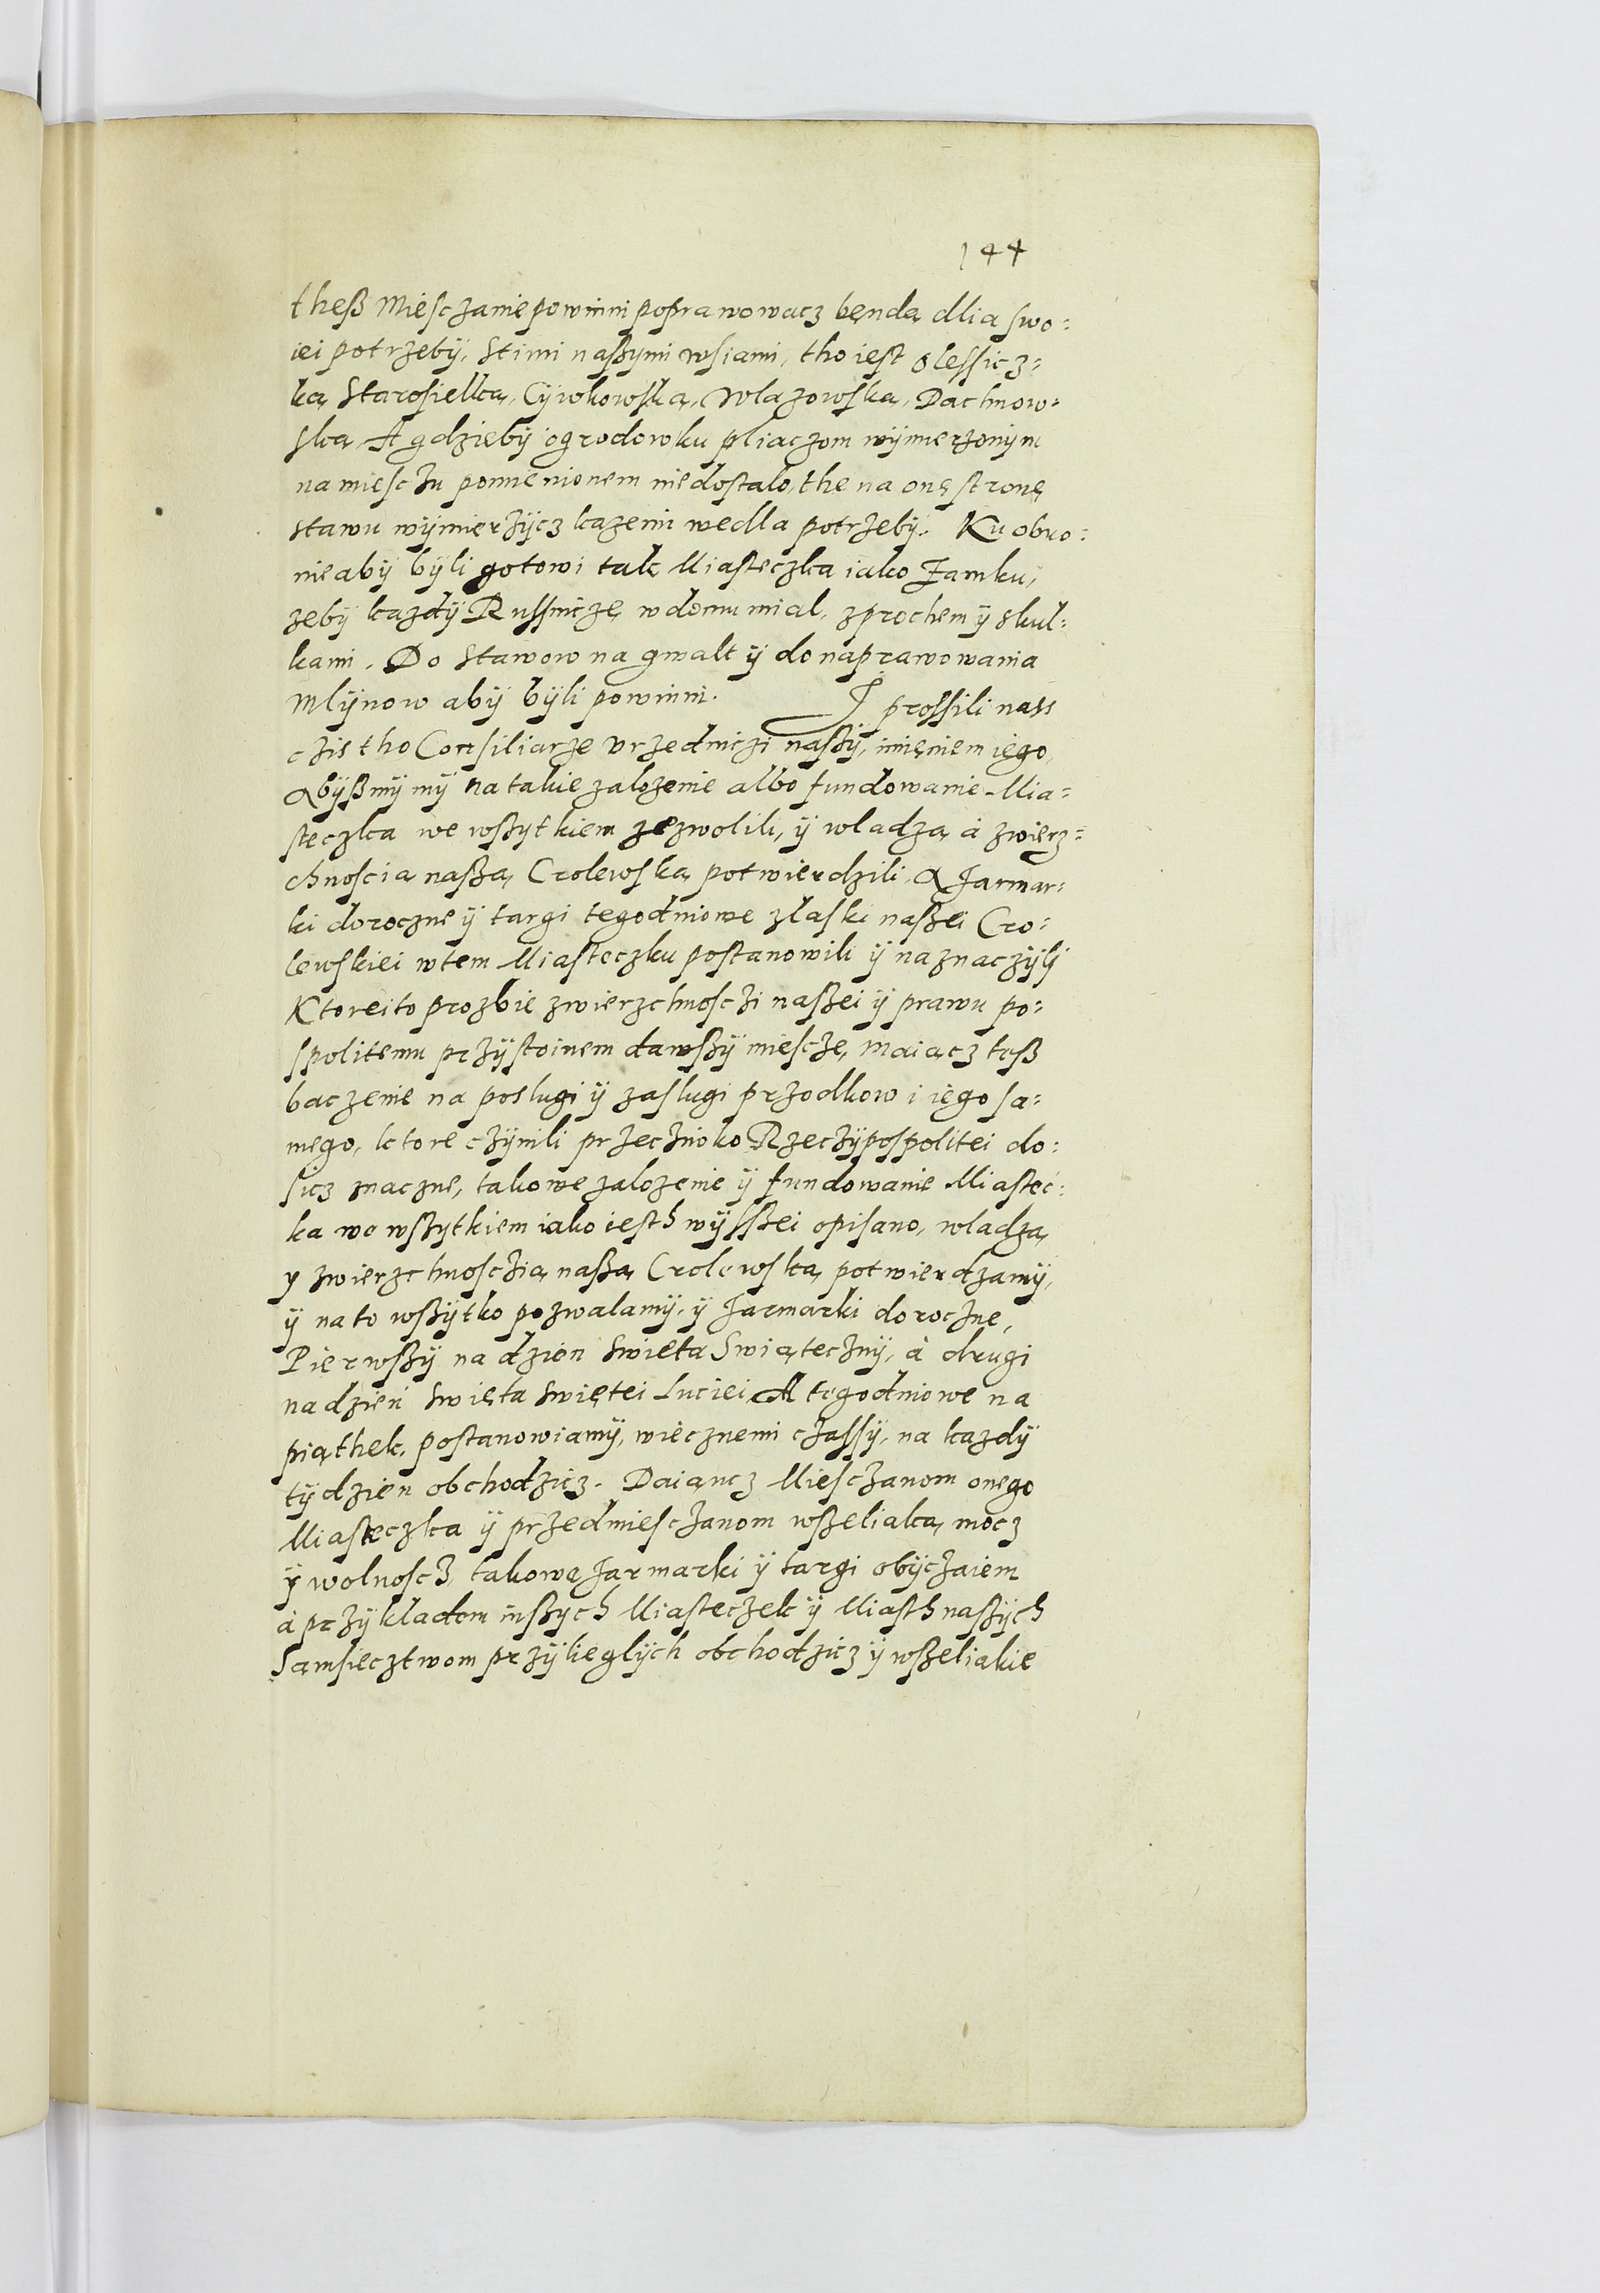 144
theß Miesczanie powinni poprawowacz bęnda dlia swo=
iei potrzebÿ, Stimi naßymi wsiami, tho iest Olessicz=
ką Starosielką, Cÿwkowską, Wlazowską, Dachnow=
ską A gdziebÿ ogrodowku pliaczom wÿmierzonÿm
na miesczu pomienionem niedostalo, the na onę stronę
stawu wÿmierzÿcz kazemi wedla potrzebÿ. Ku obro=
nie abÿ bÿli gotowi tak Miasteczka iako Zamku,
zebÿ kazdÿ Russniczę w domu mial, z prochem ÿ skul=
kami. Do Stawow na gwalt ÿ do naprawowania
Mlÿnow abÿ bÿli powinni. I prossili nass
czis tho Consiliarze vrzedniczi naßÿ, imięniem iego,
Abÿßmÿ mÿ na takie zalozenie albo fundowanie Mia=
steczka we wßytkiem zezwolili, ÿ wladzą à zwierz=
chnoscią naßą Crolewską potwierdzili, A Jarmar=
ki doroczne ÿ targi tegodniowe z laski naßei Cro=
lewskiei w tem Miasteczku postanowili ÿ naznaczÿli
Ktorei to prozbie zwierzchnosczi naßei ÿ prawu po=
spolitemu przÿstoinem dawßÿ miescze, Maiącz teß
baczenie na poslugi ÿ zaslugi przodkow i iego sa=
mego, ktore czÿnili przecziwko Rzeczÿpospolitei do=
sicz znaczne, takowe zalozenie ÿ fundowanie Miastec=
ka wo wßytkiem iako iesth wÿssßei opisano, wladzą
y zwierzchnosczią naßą Crolewską potwierdzamÿ,
ÿ na to wßÿtko pozwalamÿ, ÿ Jarmarki doroczne,
Pierwßÿ na dzien Swięta Swiątecznÿ, à drugi
na dzień Swięta Swiętei Luciei A tegodniowe na
piąthek, postanowiamÿ, wiecznemi czassÿ, na kazdÿ
tÿdzien obchodzicz. Daiącz Miesczanom onego
Miasteczka ÿ przedmiesczanom wßeliaką mocz
ÿ wolnoscz, takowe Jarmarki ÿ targi obÿczaiem
à przÿkladem inßych Miasteczek ÿ Miasth naßÿch
Samsiecztwom przÿlieglÿch obchodzicz ÿ wßeliakie